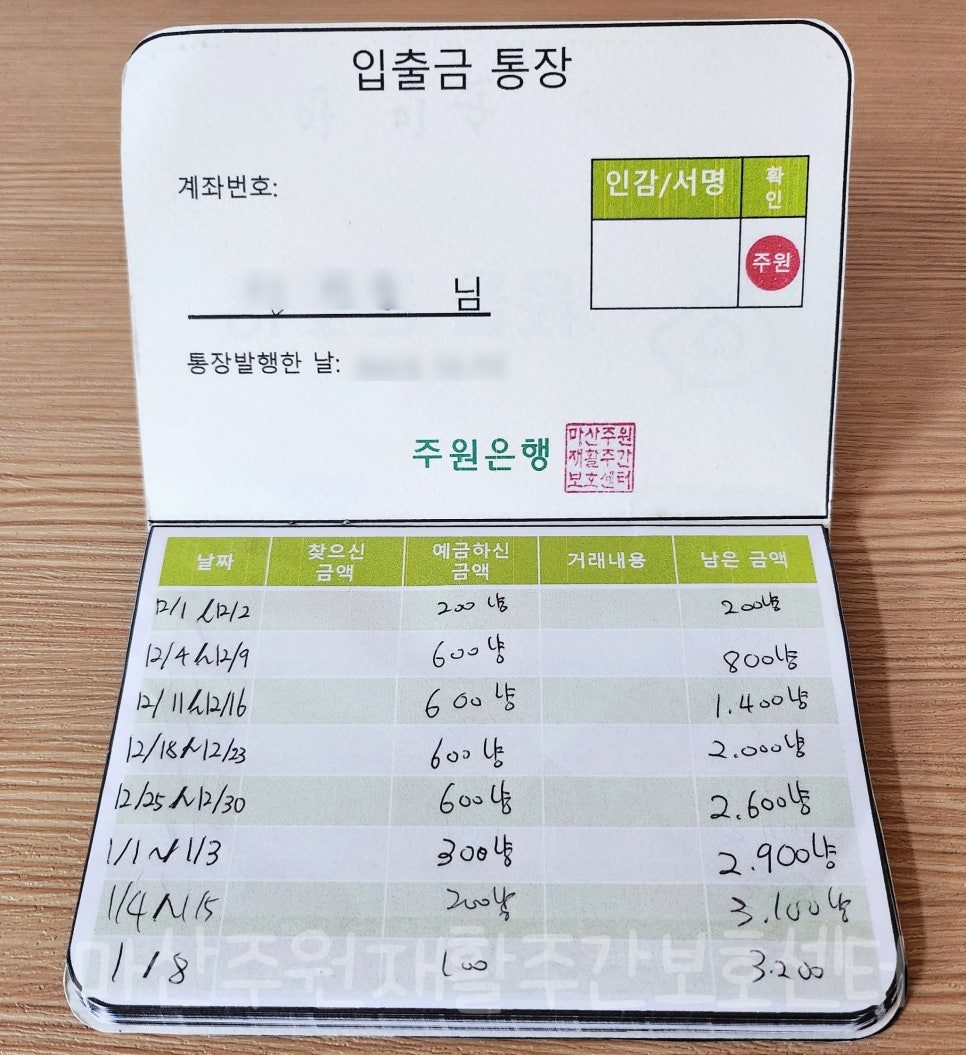 입출금 통장
계좌번호:
인감/서명 확인
주원
님
통장발행한 날:
주원은행
마산주원
재활주간
보호센터
날짜 찾으신 금액 예금하신 금액 거래내용 남은 금액
12/1 ~12/2 200냥 200냥
12/4 ~12/9 600냥 800냥
12/11~12/16 600냥 1.400냥
12/18~12/23 600냥 2.000냥
12/25~12/30 600냥 2.600냥
1/1~1/3 300냥 2.900냥
1/4~1/5 200냥 3.100냥
1/8 100 3.200
마산주원재활주간보호센터